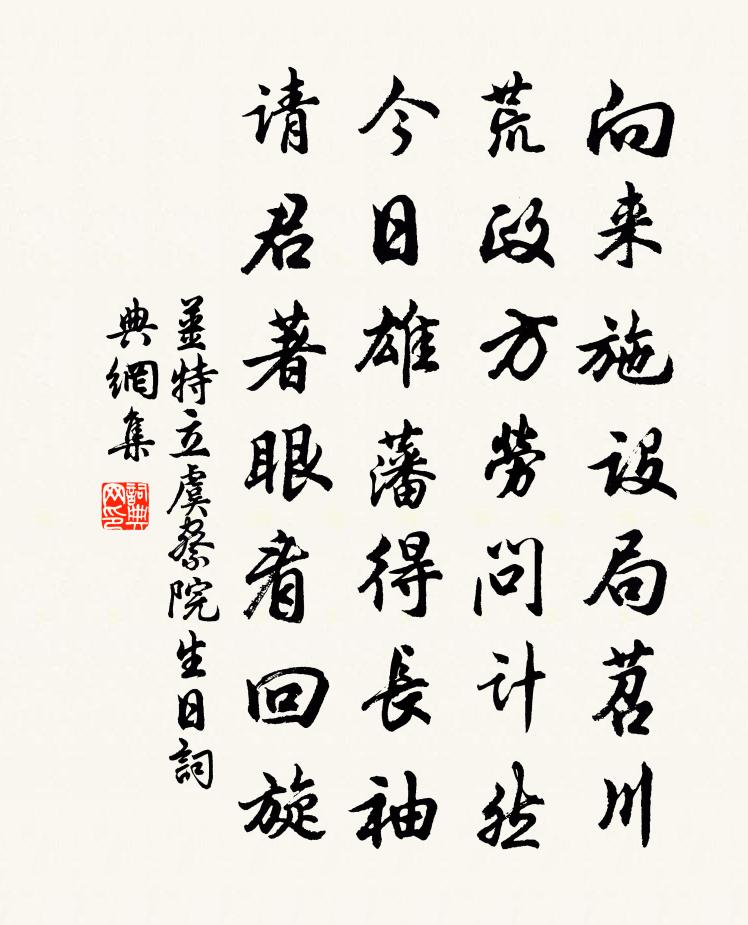 向来施设局苕川
荒政方劳问计然
今日雄藩得長袖
请君著眼看回旋
姜特立虞察院生日詞
典網集
詞典
网印